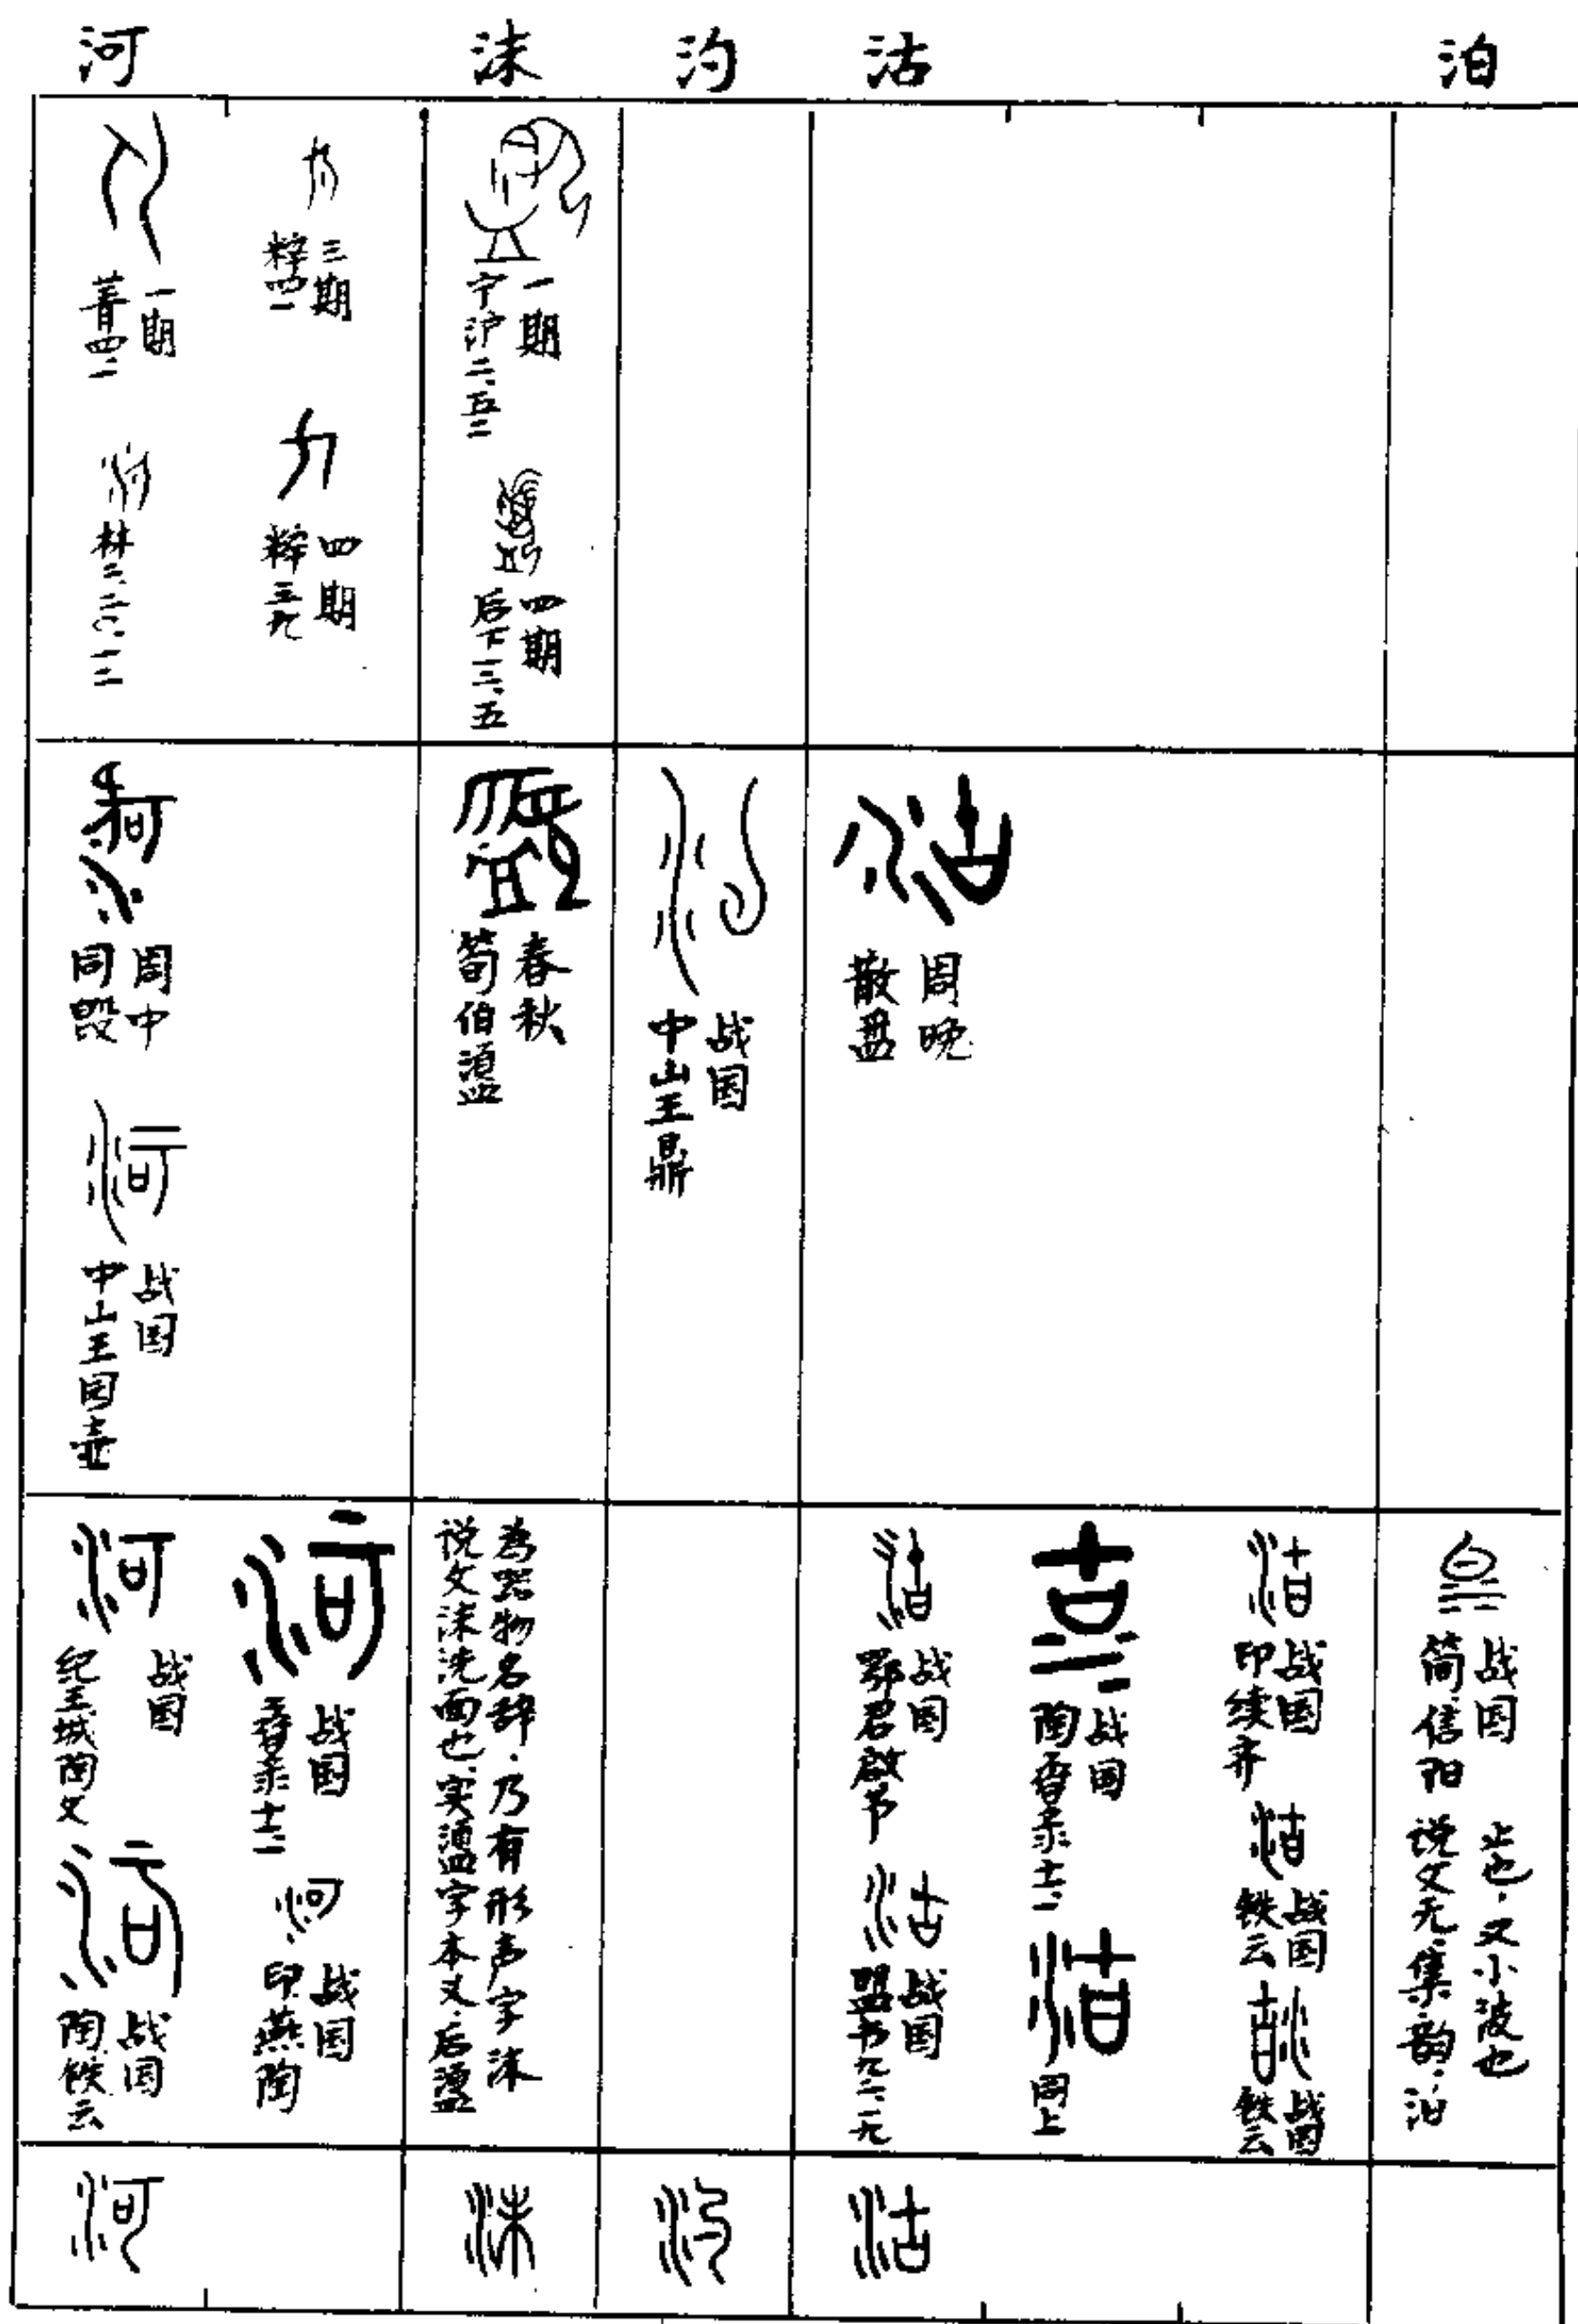 河 沬 汋 沽 泊
一期
菁四二
林二·二〇·一二
三期
粹四一
四期
粹三九
一期
宁沪二·五二
四期
后下一二·五
周中
同𣪘
战国
中山王圆壶
春秋
筍伯盨
战国
中山王鼎
周晚
散盘
战国
纪王城陶文
战国
陶铁云
战国
春录十一·一
战国
印燕陶
为器物名辞·乃有形声字沬
说文沬洗面也·实盨字本义·后盨
战国
鄂君啟节
战国
盟书
战国
陶春录十一·一
同上
战国
印续齐
战国
铁云
战国
铁云
战国
简信阳
说文无·集韵·泊
止也·又小波也
河 沬 汋 沽